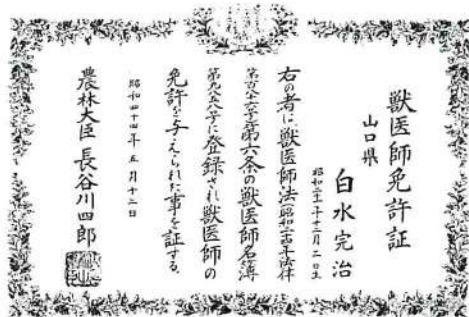 獣医師免許証
山口県
白水完治
昭和 年十二月二日生
右の者は、獣医師法(昭和二十四年法律
第百八十六号)第六条の獣医師名簿
号に登録され獣医師の
免許を与えられた事を証する。
昭和四十四年五月十二日
農林大臣 長谷川四郎